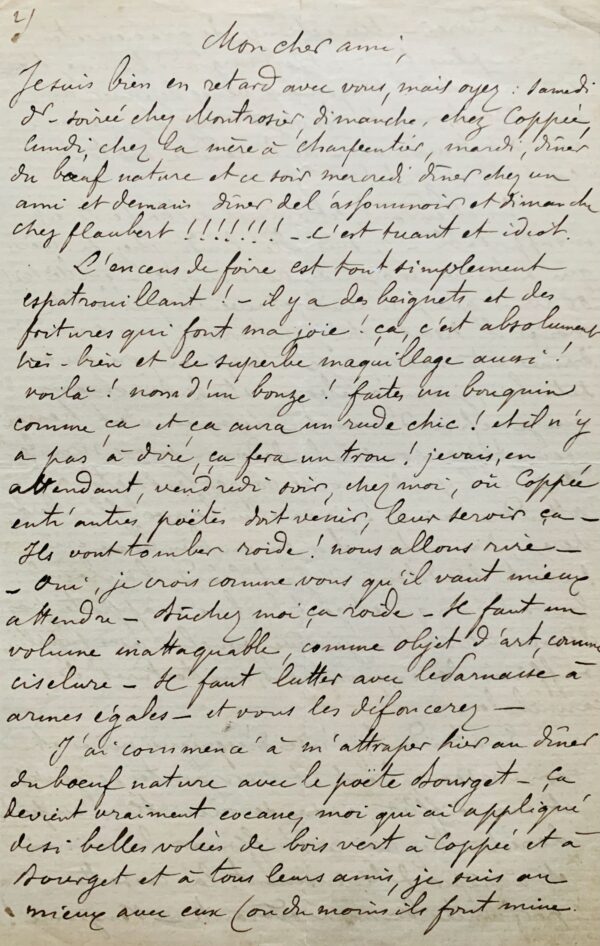 2)
Mon cher ami,
Je suis bien en retard avec vous, mais oyez : Samedi
Dr - soirée chez Montrosier, dimanche, chez Coppée,
lundi, chez la mère à Charpentier, mardi, dîner
du boeuf nature et ce soir mercredi dîner chez un
ami et demain dîner de l'assommoir et dimanche
chez flaubert !!!!!!! - c'est tuant et idiot.
L'encens de foire est tout simplement
espatrouillant ! - il y a des beignets et des
fritures qui font ma joie ! ça, c'est absolument
très-bien et le superbe maquillage aussi !
voilà ! nom d'un bonze ! faites un bouquin
comme ça et ça aura un rude chic ! et il n'y
a pas à dire, ça fera un trou ! je vais, en
attendant, vendredi soir, chez moi, où Coppée
entr'autres poëtes doit venir, leur servir ça -
Ils vont tomber roide ! nous allons rire -
- Oui, je crois comme vous qu'il vaut mieux
attendre - Bûchez moi ça roide - Il faut un
volume inattaquable, comme objet d'art, comme
ciselure - Il faut lutter avec le Parnasse à
armes égales - et vous les défoncerez -
J'ai commencé à m'attraper hier au dîner
du boeuf nature avec le poëte Bourget - ça
devient vraiment cocasse, moi qui ai appliqué
de si belles volées de bois vert à Coppée et à
Bourget et à tous leurs amis, je suis au
mieux avec eux (ou du moins ils font mine